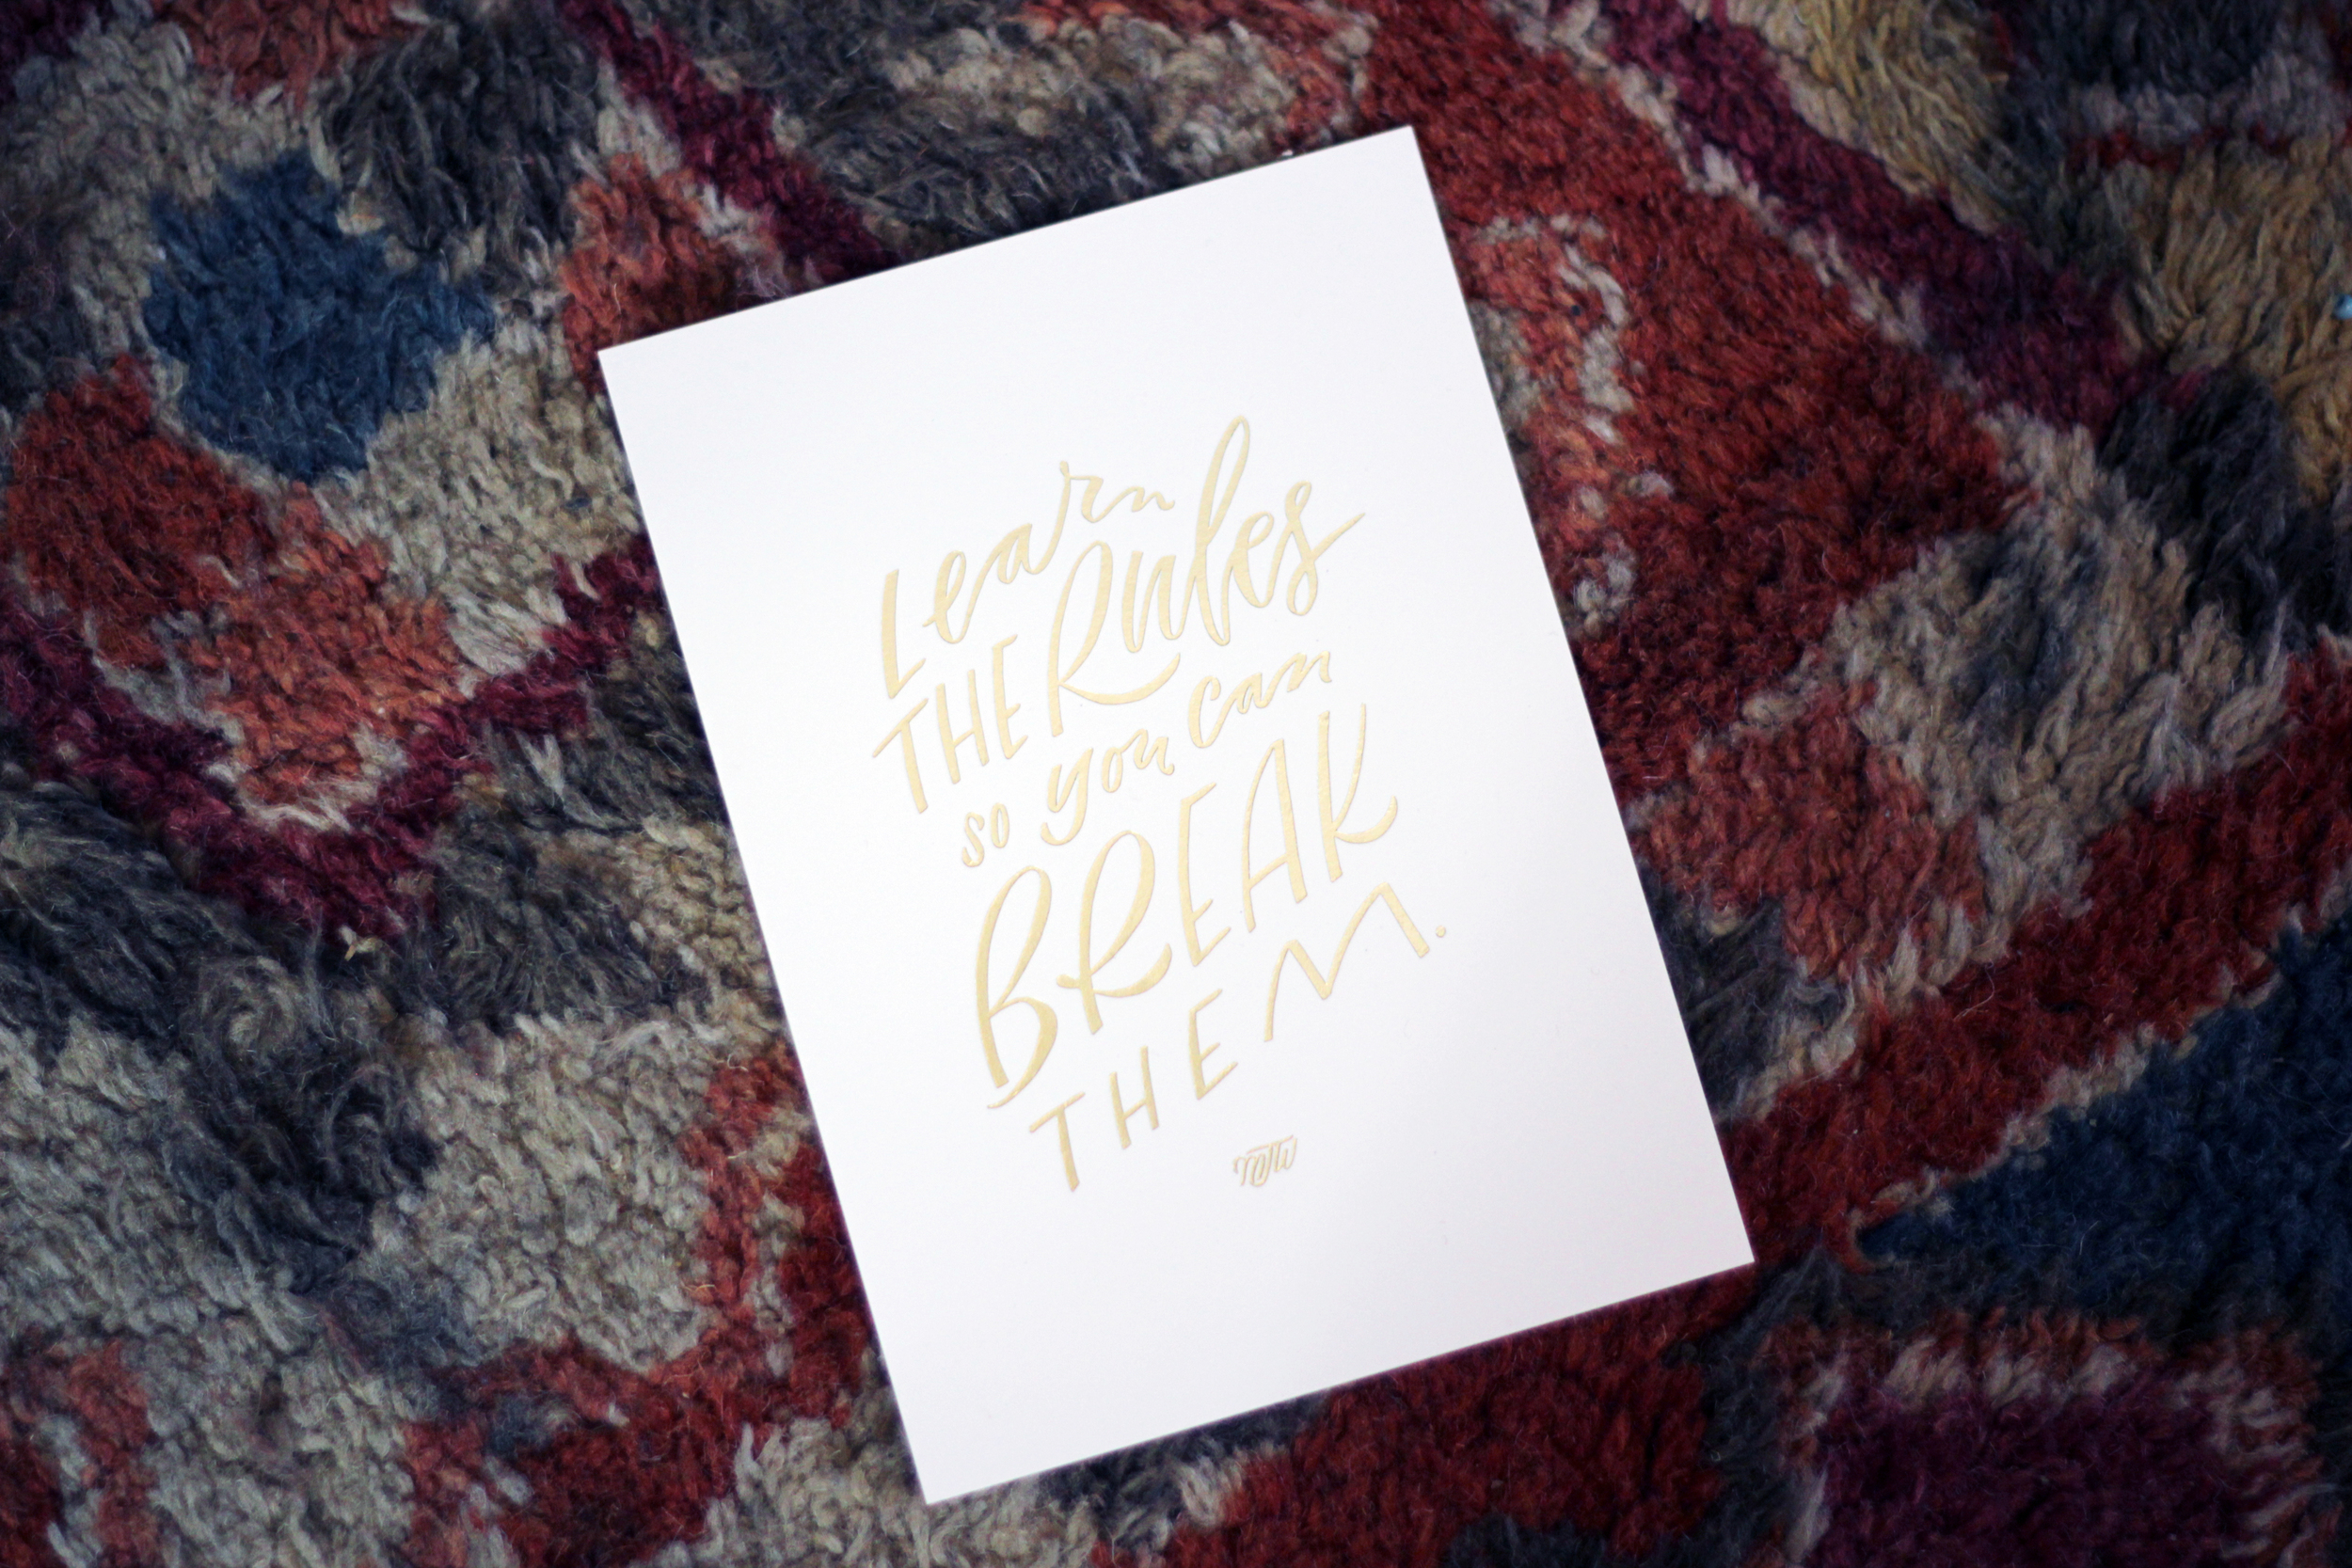 Learn
THE Rules
so you can
BREAK
THEM.